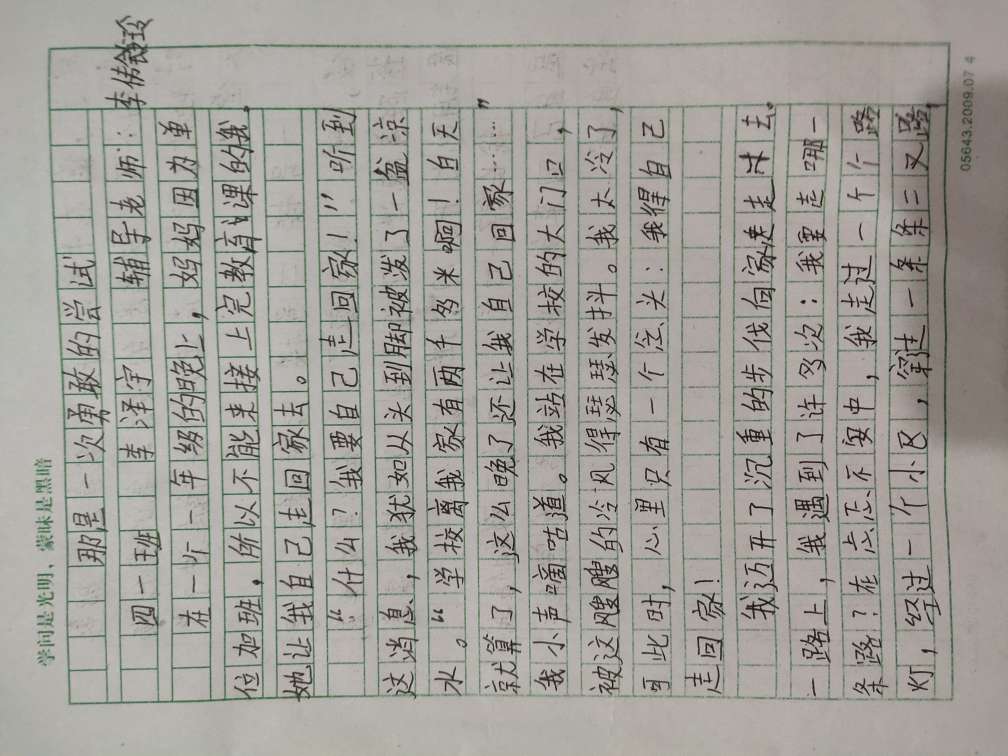 学问是光明，蒙昧是黑暗
那是一次勇敢的尝试
四一班 李泽宇 辅导老师：李倩玲
在一个一年级的晚上，妈妈因为单
位加班，所以不能来接上完教育课的我，
她让我自己走回家去。
“什么？我要自己走回家！”听到
这消息，我犹如从头到脚被泼了一盆凉
水。“学校离我家有两千多米啊！白天
就算了，这么晚了还让我自己回家……”
我小声嘀咕道。我站在学校的大门口，
被这嗖嗖的冷风得瑟瑟发抖。我太冷了，
可此时，心里只有一个念头：我得自己
走回家！
我迈开了沉重的步伐向家走去。
一路上，我遇到了许多次：我要走哪一
条路？在忐忑不安中，我走过一个个路
灯，经过一个小区，穿过一条条二叉路，
05643.2009.07 4